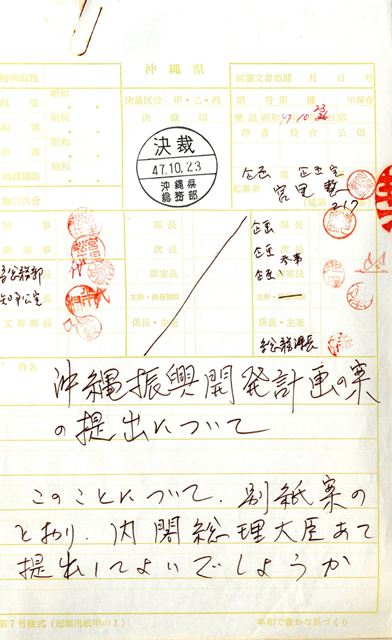 沖縄県
特別取扱
同種文書処理 月 日 号
昭和
決裁区分 甲・乙・丙
第 号 第 種 年保存
決裁印
発送 昭和47・10・23
収受
浄書 校合 公印
決裁
47.10.23
沖縄県
総務部
企画部 企画室
起案者 宮里整
(電話 217
処理期限
施行区分
部長
企画
知事
次長
企画 参事
総務部
副室長
企画
知事公室
主幹・副室補佐
文書課長
係長・主査
総務課長
件名
沖縄振興開発計画の案
の提出について
このことについて、別紙案の
とおり、内閣総理大臣あて
提出してよいでしょうか
第7号様式(起案用紙甲の1)
平和で豊かな県づくり